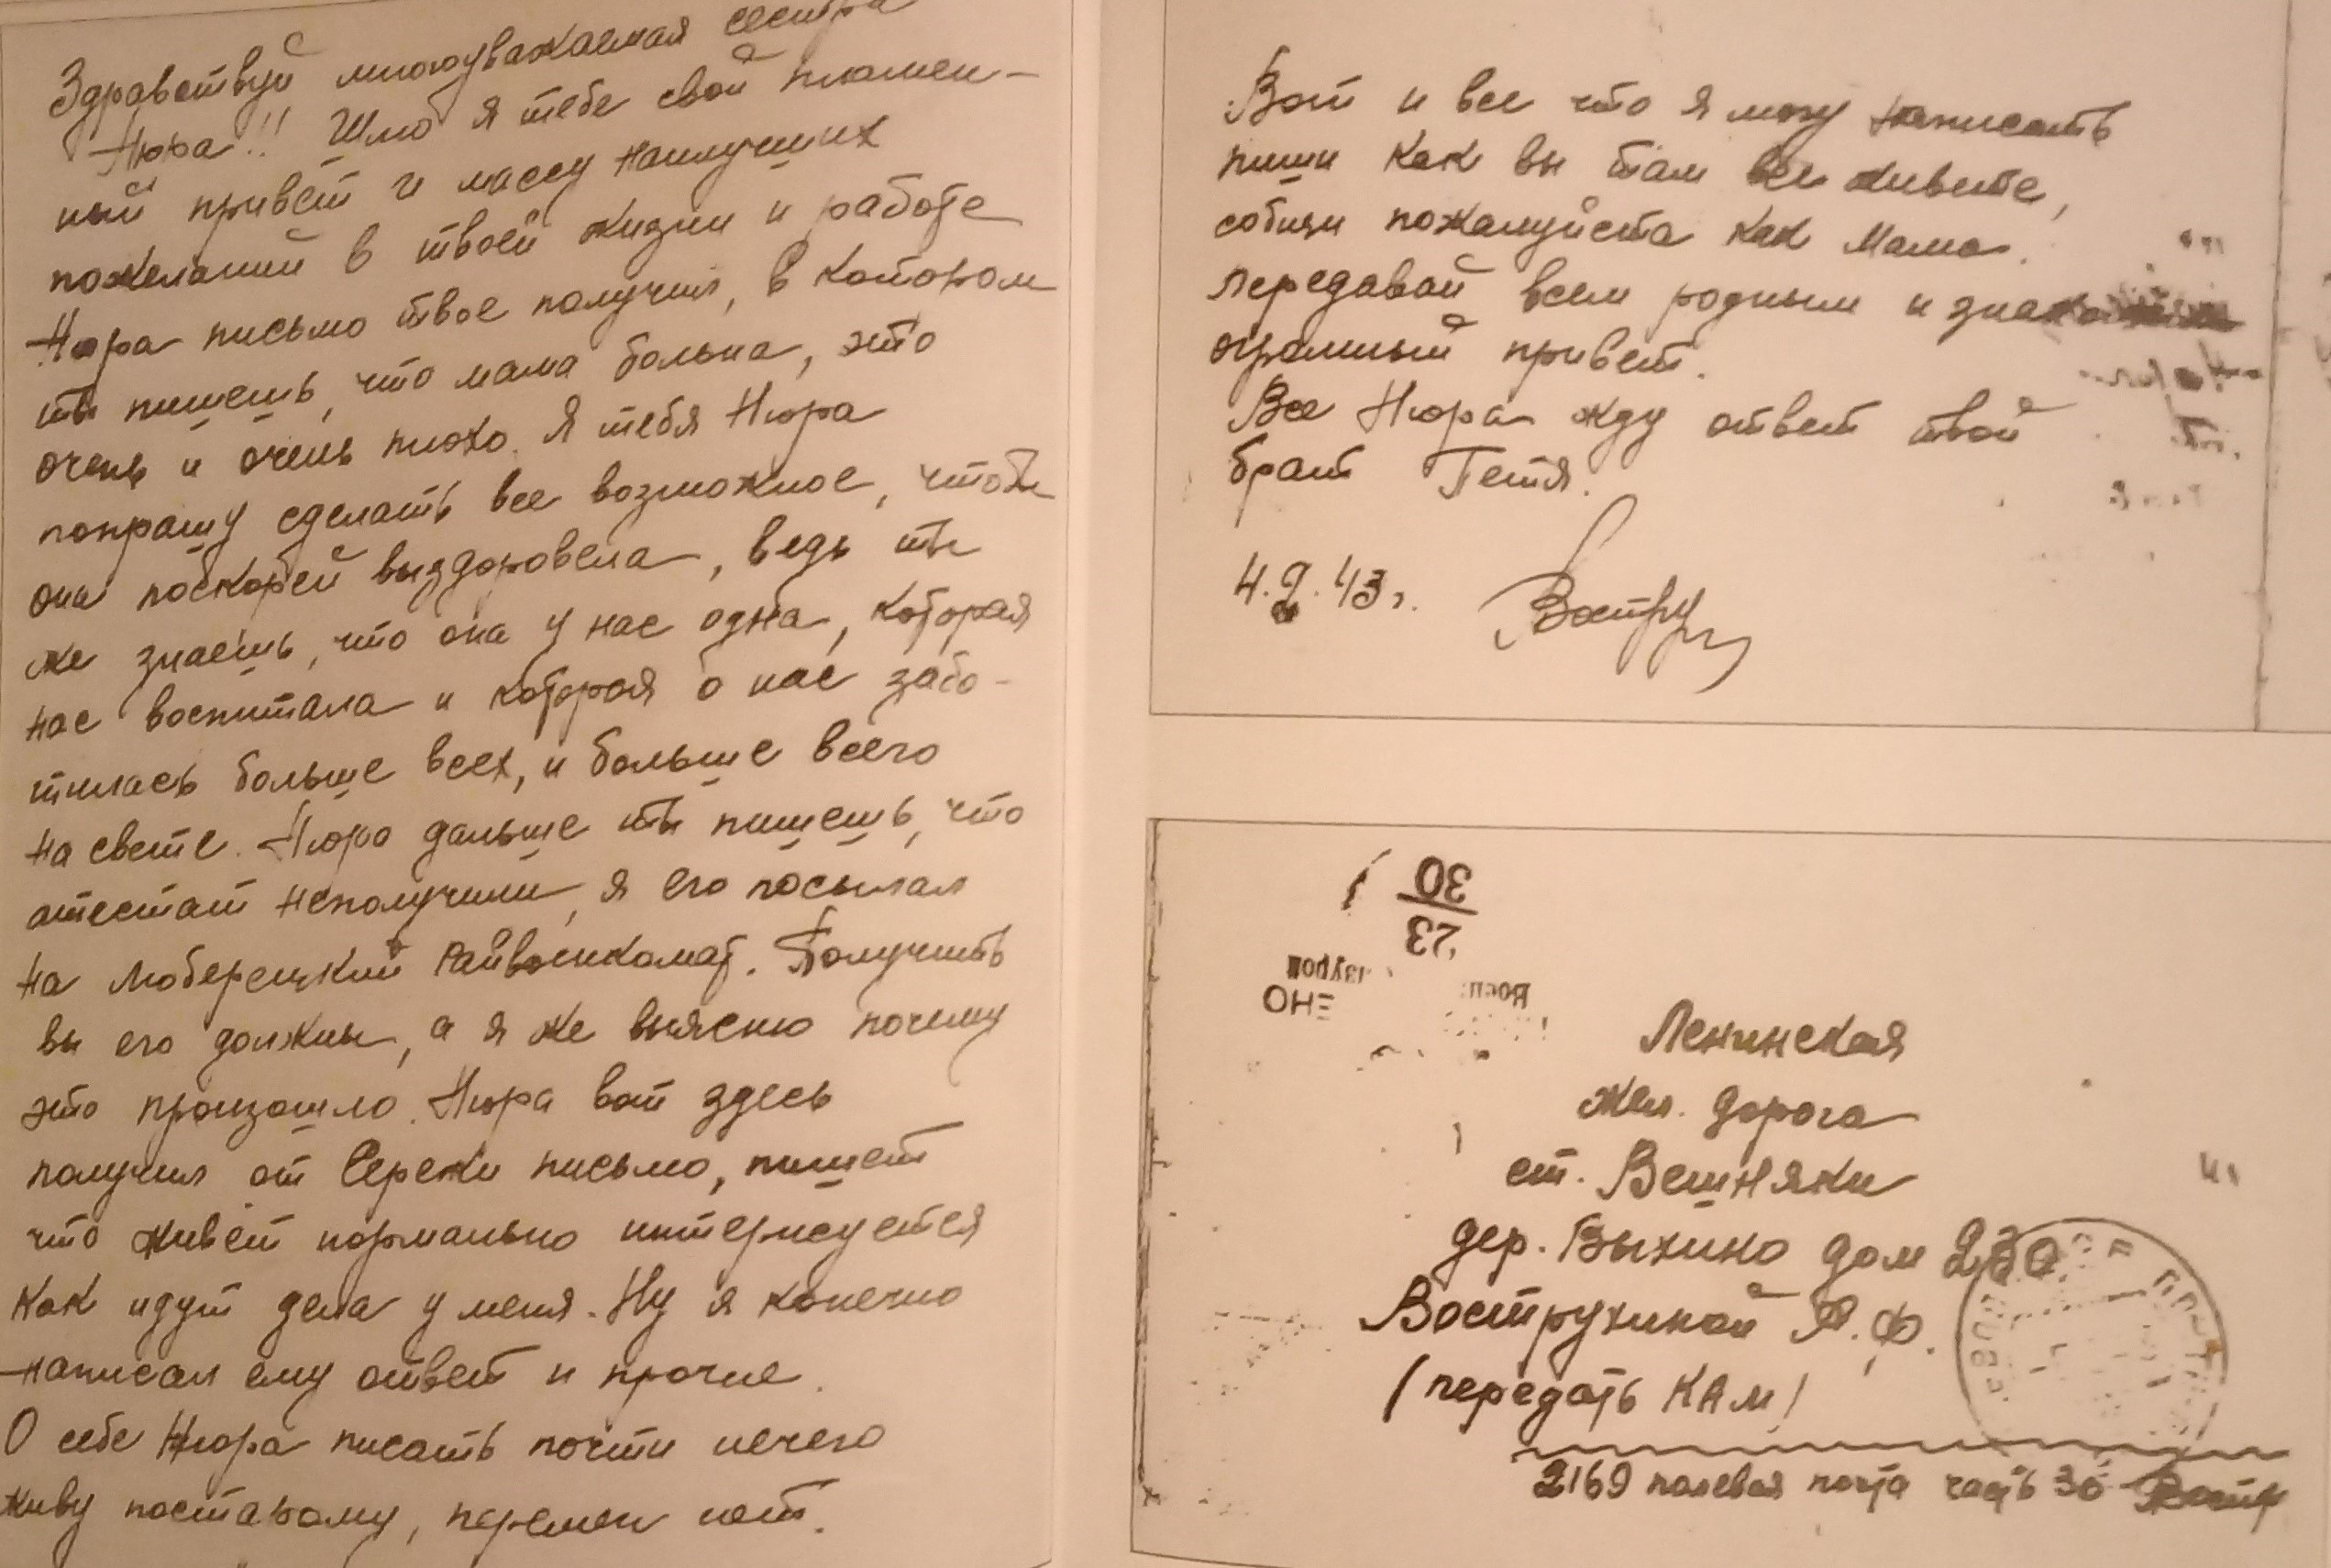 Здравствуй многоуважаемая сестра
Нюра!! Шлю я тебе свой пламен-
ный привет и массу наилучших
пожеланий в твоей жизни и работе
Нюра письмо твое получил, в котором
ты пишешь, что мама больна, это
очень и очень плохо. Я тебя Нюра
попрашу сделать все возможное, чтобы
она поскорей выздоровела, ведь ты
же знаешь, что она у нас одна, которая
нас воспитала и которая о нас забо-
тилась больше всех, и больше всего
на свете. Нюра дальше ты пишешь, что
атестат неполучили, я его посылал
на Люберецкий Райвоенкомат. Получить
вы его должны, а я же выясню почему
это произошло. Нюра вот здесь
получил от Сережи письмо, пишет
что живет нормально интерисуется
как идут дела у меня. Ну я конечно
написал ему ответ и прочие.
О себе Нюра писать почти нечего
живу постарому, перемен нет.
Вот и все что я могу написать
пиши как вы там все живете,
собщи пожалуйста как мама.
передавай всем родным и знакомым
огромный привет.
Все Нюра жду ответ твой
брат Петя.
43 г. Востру
30
23
ЕНО
Ленинская
жел. дорога
ст. Вешняки
дер. Выхино дом 230
Вострухиной А. Ф.
(передать КАМ)
2169 полевая почта часть 30 Востр